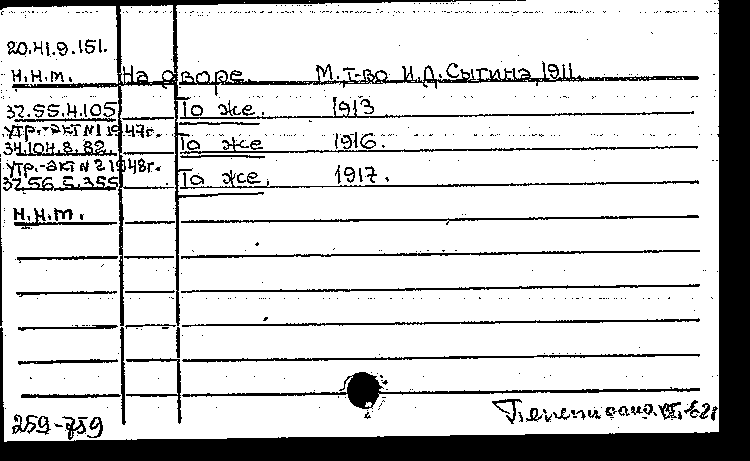 20.41.9.151.
Н.Н.М. На дворе. М, Т-во И.Д.Сытина, 1911.
32.55.4.105 То же. 1913
Утр.-акт N1 1947г.
34.104.8.82. То же 1916.
Утр.-акт N 2 1948г.
32.56.5.355 То же. 1917.
Н.Н.М.
259-759 Переписана